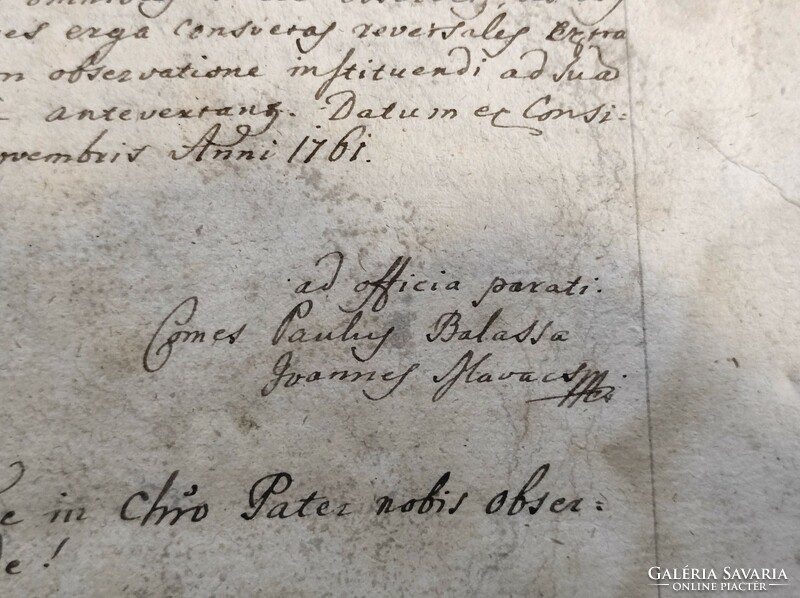 es erga Consvetas reversales Extra
m observatione instituendi ad suã
antevertant. Datum ex Consi:
ovembris Anni 1761.
ad officia parati.
Comes Paulus Balassa
Joannes Slavacs
e in Chrõ Pater nobis obser:
de!
GALÉRIA SAVARIA
ONLINE PIACTÉR